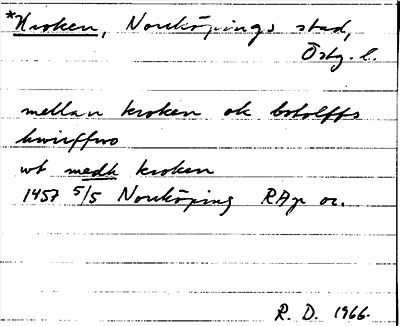 *Kroken, Norrköpings stad,
Östg. l.
mellan kroken ok botolffs
hwrffwo
wt medh kroken
1457 5/5 Norrköping RAp or.
R. D. 1966.